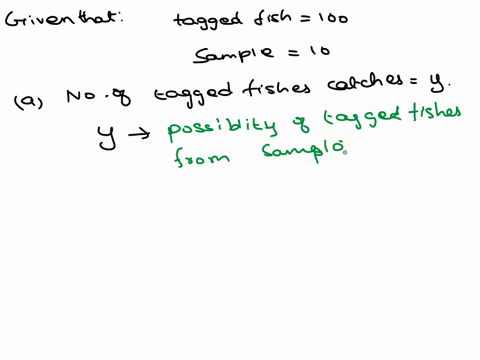 Given that: tagged fish = 100
Sample = 10
(a) No. of tagged fishes catches = y.
y → possiblity of tagged fishes
from sample